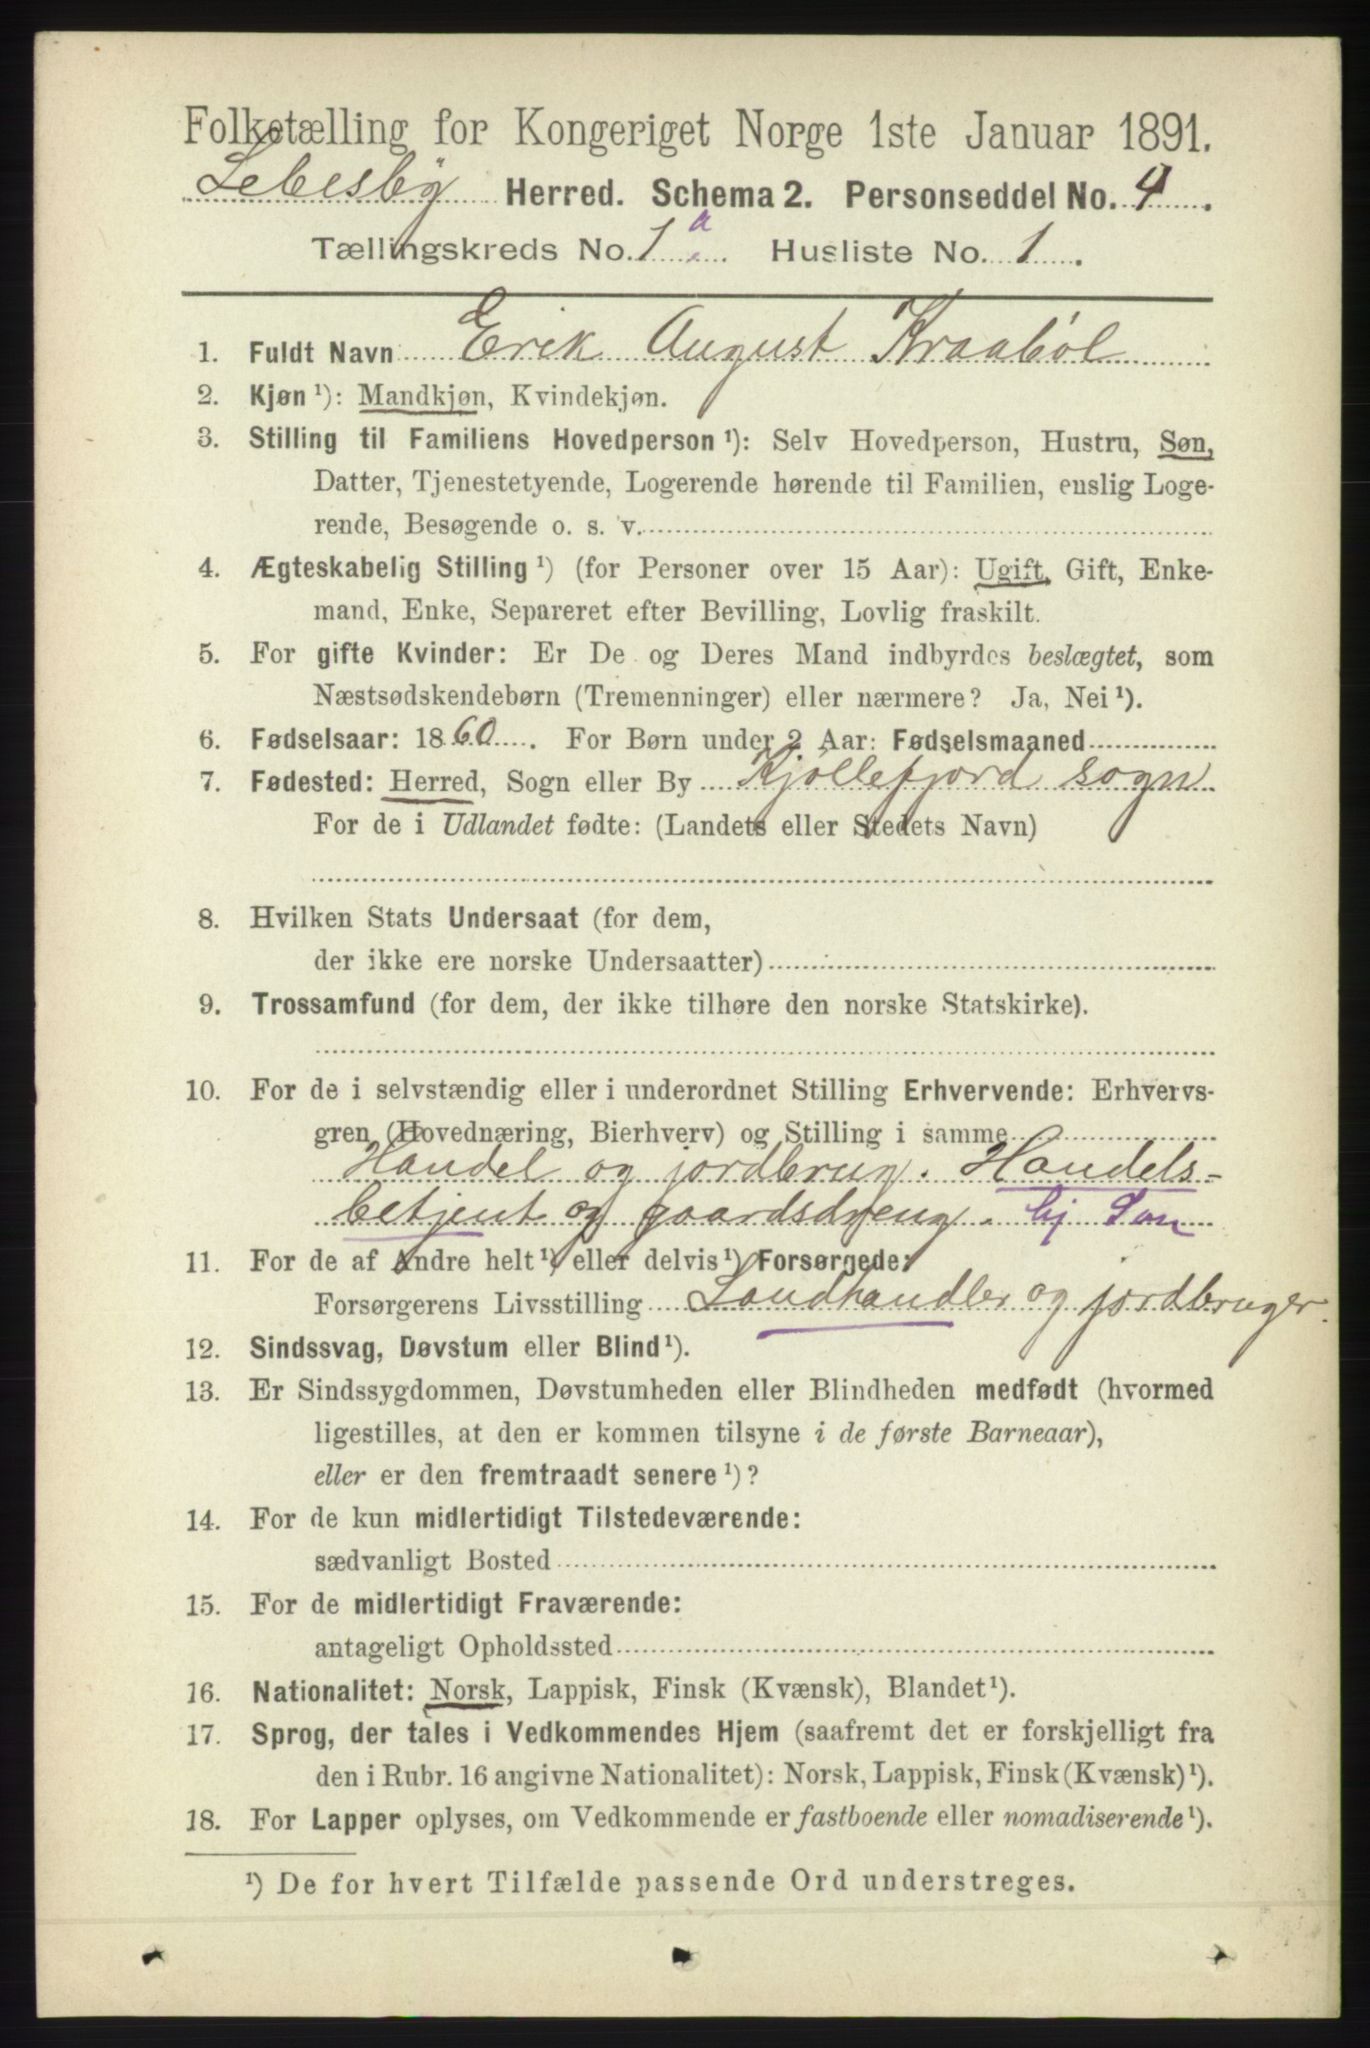 Folketælling for Kongeriget Norge 1ste Januar 1891.
Lebesby Herred. Schema 2. Personseddel No. 4.
Tællingskreds No. 1 a. Husliste No. 1.
1. Fuldt Navn Erik August Kraabøl
2. Kjøn ¹): Mandkjøn, Kvindekjøn.
3. Stilling til Familiens Hovedperson ¹): Selv Hovedperson, Hustru, Søn,
Datter, Tjenestetyende, Logerende hørende til Familien, enslig Loge-
rende, Besøgende o. s. v.
4. Ægteskabelig Stilling ¹) (for Personer over 15 Aar): Ugift, Gift, Enke-
mand, Enke, Separeret efter Bevilling, Lovlig fraskilt.
5. For gifte Kvinder: Er De og Deres Mand indbyrdes beslægtet, som
Næstsødskendebørn (Tremenninger) eller nærmere? Ja, Nei ¹).
6. Fødselsaar: 1860. For Børn under 2 Aar: Fødselsmaaned
7. Fødested: Herred, Sogn eller By Kjøllefjord sogn.
For de i Udlandet fødte: (Landets eller Stedets Navn)
8. Hvilken Stats Undersaat (for dem,
der ikke ere norske Undersaatter)
9. Trossamfund (for dem, der ikke tilhøre den norske Statskirke).
10. For de i selvstændig eller i underordnet Stilling Erhvervende: Erhvervs-
gren (Hovednæring, Bierhverv) og Stilling i samme
Handel og jordbrug. Handels-
betjent og gaardsdreng. hj Søn
11. For de af Andre helt ¹) eller delvis ¹) Forsørgede:
Forsørgerens Livsstilling Landhandler og jordbruger.
12. Sindssvag, Døvstum eller Blind ¹).
13. Er Sindssygdommen, Døvstumheden eller Blindheden medfødt (hvormed
ligestilles, at den er kommen tilsyne i de første Barneaar),
eller er den fremtraadt senere ¹)?
14. For de kun midlertidigt Tilstedeværende:
sædvanligt Bosted
15. For de midlertidigt Fraværende:
antageligt Opholdssted
16. Nationalitet: Norsk, Lappisk, Finsk (Kvænsk), Blandet ¹).
17. Sprog, der tales i Vedkommendes Hjem (saafremt det er forskjelligt fra
den i Rubr. 16 angivne Nationalitet): Norsk, Lappisk, Finsk (Kvænsk) ¹).
18. For Lapper oplyses, om Vedkommende er fastboende eller nomadiserende ¹).
¹) De for hvert Tilfælde passende Ord understreges.